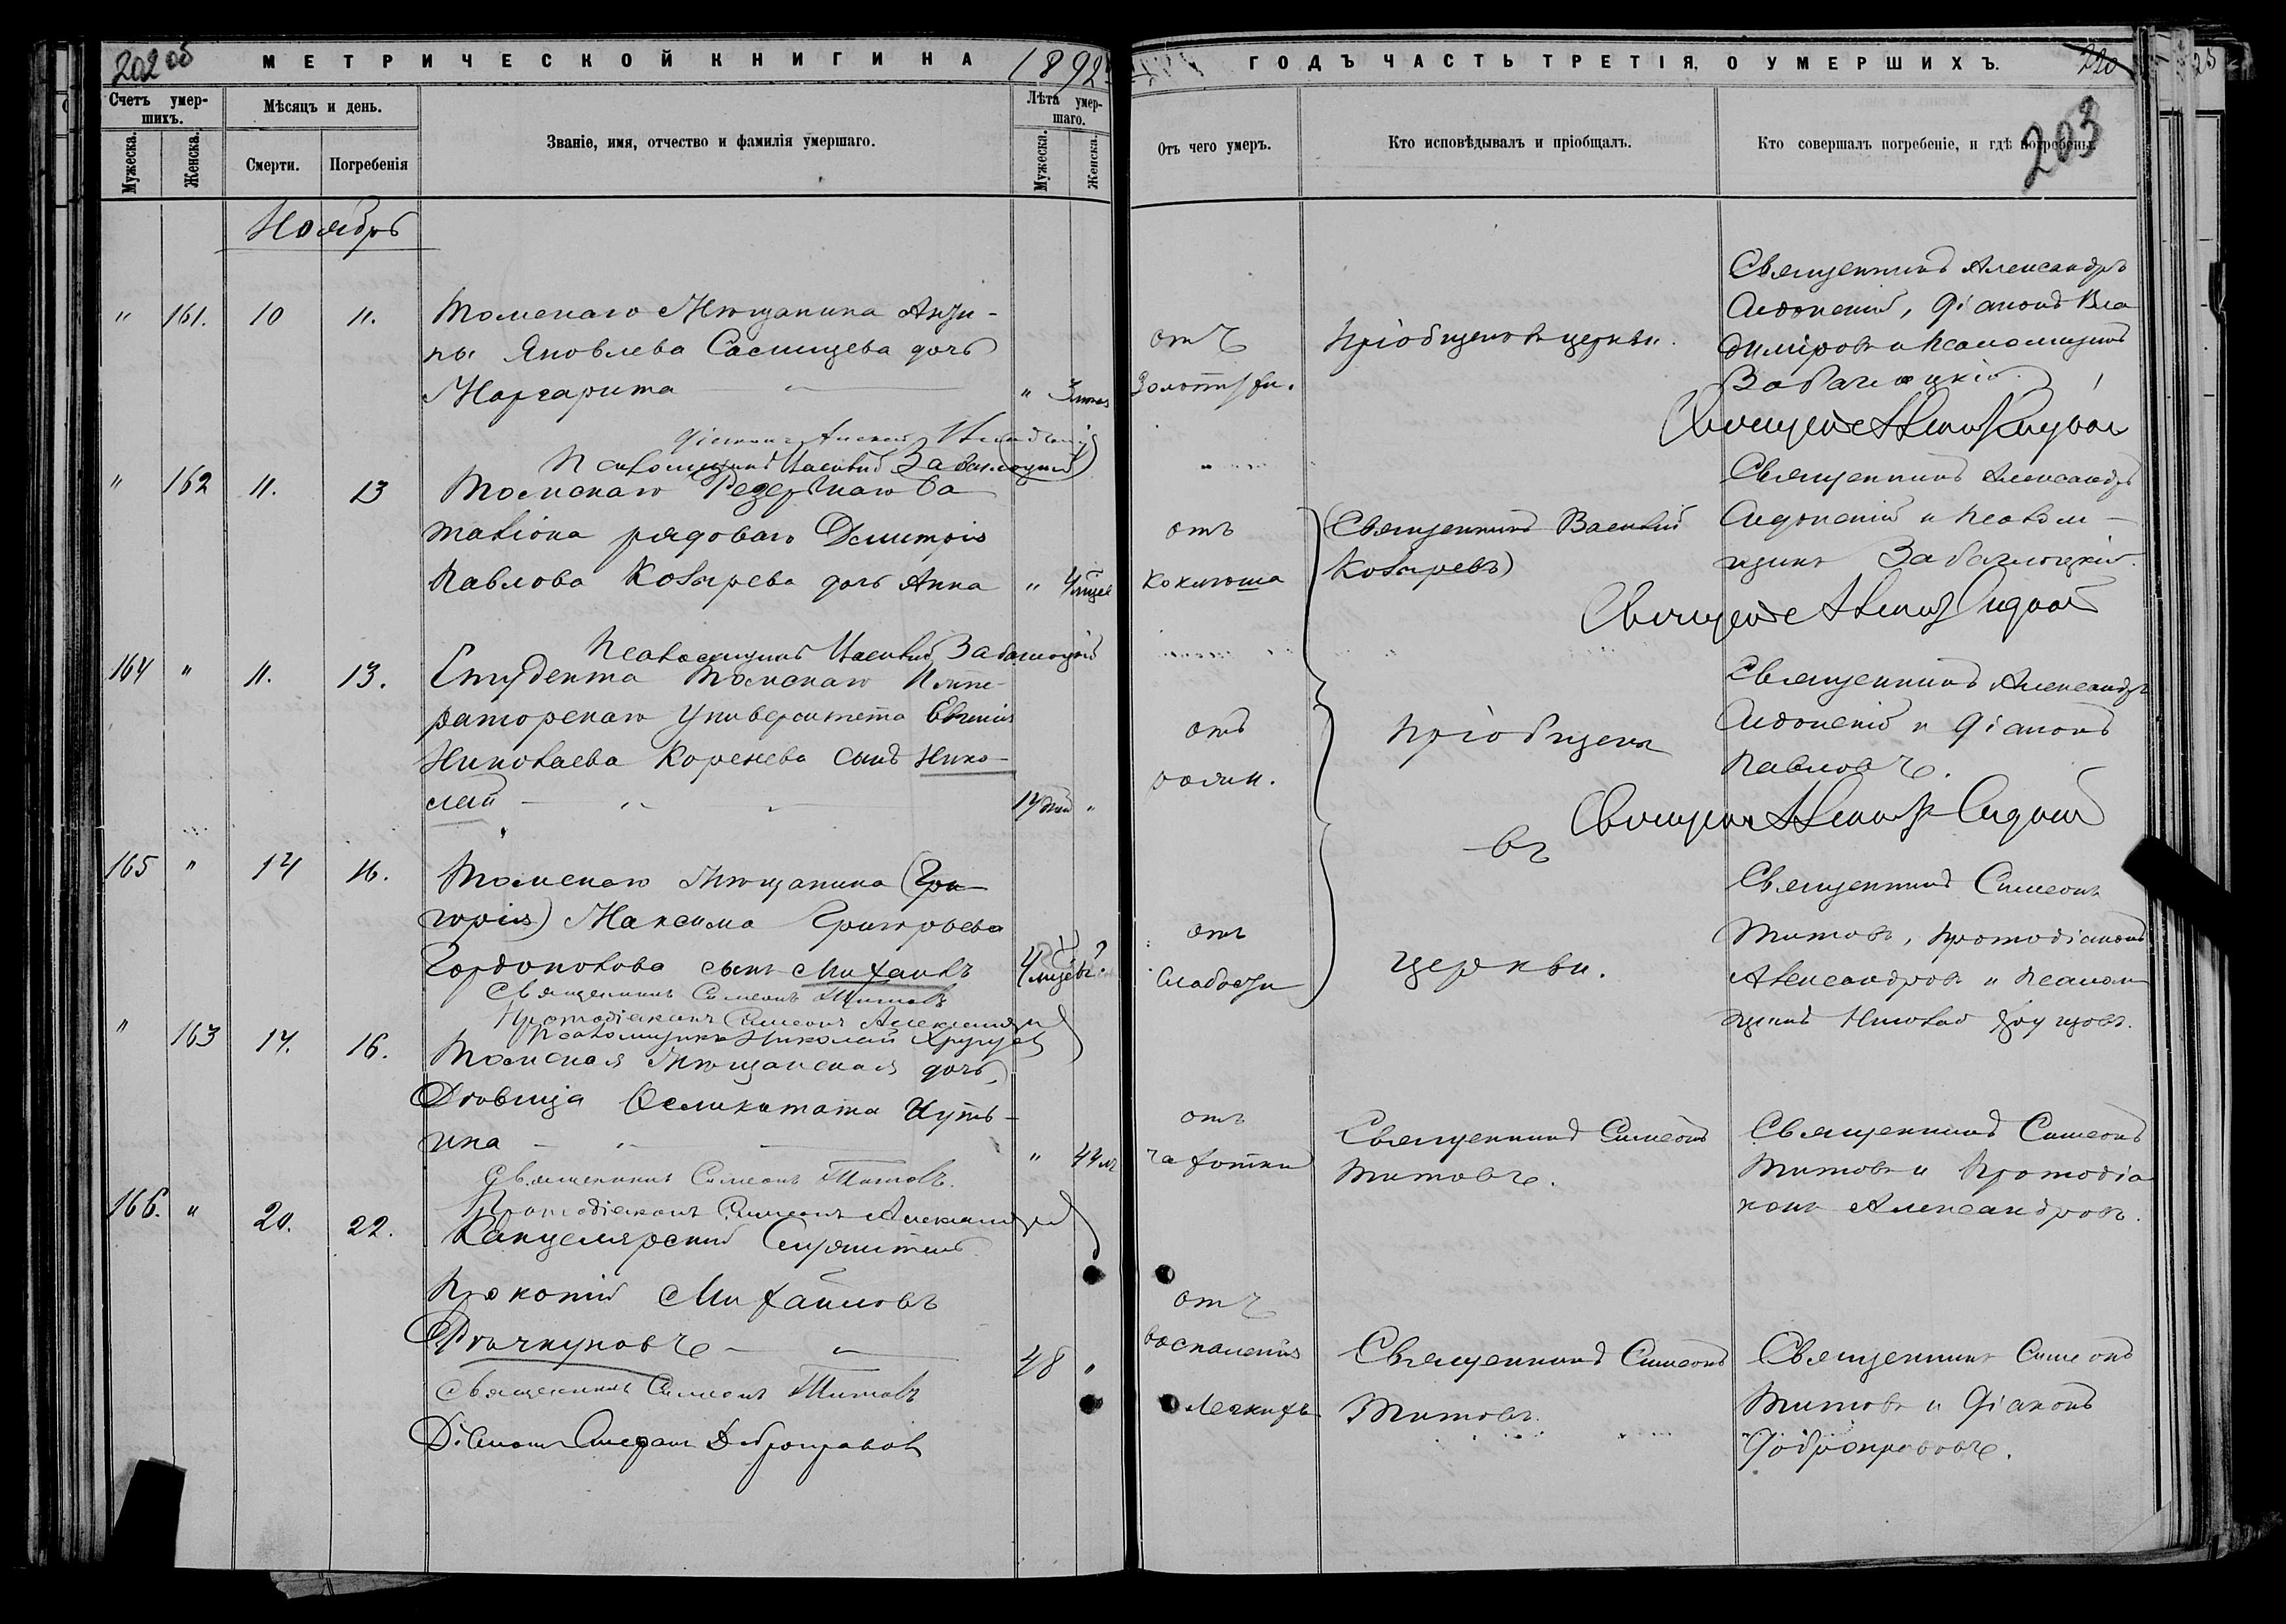 МЕТРИЧЕСКОЙ КНИГИ НА 1892
ГОДЪ ЧАСТЬ ТРЕТІЯ, О УМЕРШИХЪ.
202
220
203
Счетъ умер-
шихъ.
Мужеска.
Женска.
Мѣсяцъ и день.
Смерти.
Погребенія
Званіе, имя, отчество и фамилія умершаго.
Лѣта умер-
шаго.
Мужеска.
Женска.
Отъ чего умеръ.
Кто исповѣдывалъ и пріобщалъ.
Кто совершалъ погребеніе, и гдѣ погребены.
Ноябрь
" 161. 10 11.
Томскаго Мѣщанина
Яковлева дочь
Маргарита
"
отъ
Золотухи.
Пріобщена въ церкви.
Священникъ Александръ
Сидонскій, Діаконъ Вла
диміровъ и Псаломщикъ
Заблоцкій
Псаломщикъ Заблоцкій
" 162 11. 13
Томскаго Резервнаго Ба
таліона рядоваго Димитрія
Павлова Козырева дочь Анна
"
отъ
Коклюша
(Священникъ Василій
Козыревъ)
Священникъ Александръ
Сидонскій и Псалом-
щикъ Заблоцкій.
Псаломщикъ Заблоцкій
164 " 11. 13.
Студента Томскаго Импе-
раторскаго Университета Евгенія
Николаева Коренева сынъ Нико-
лай
"
отъ
Пріобщены
Священникъ Александръ
Сидонскій и Діаконъ
Павловъ.
165 " 14 16.
Томскаго Мѣщанина (Гри-
горія) Максима Григорьева
сынъ Михаилъ
отъ
Слабости
въ
церкви.
Священникъ Симеонъ
Титовъ, Протодіаконъ
Александровъ и Псалом
щикъ Николай Хрущовъ.
Священникъ Симеонъ Титовъ
Протодіаконъ Симеонъ Александровъ
Псаломщикъ Николай Хрущовъ
" 163 14. 16.
Томская Мѣщанская дочь,
Дѣвица
"
отъ
чахотки
Священникъ Симеонъ
Титовъ.
Священникъ Симеонъ
Титовъ и Протодіа
конъ Александровъ.
Священникъ Симеонъ Титовъ.
Протодіаконъ Симеонъ Александровъ
166. " 20. 22.
Канцелярскій Служитель
Прокопій Михайловъ
48 "
отъ
воспаленія
Легкихъ
Священникъ Симеонъ
Титовъ.
Священникъ Симеонъ
Титовъ и Діаконъ
Доброправовъ.
Священникъ Симеонъ Титовъ
Діаконъ Доброправовъ